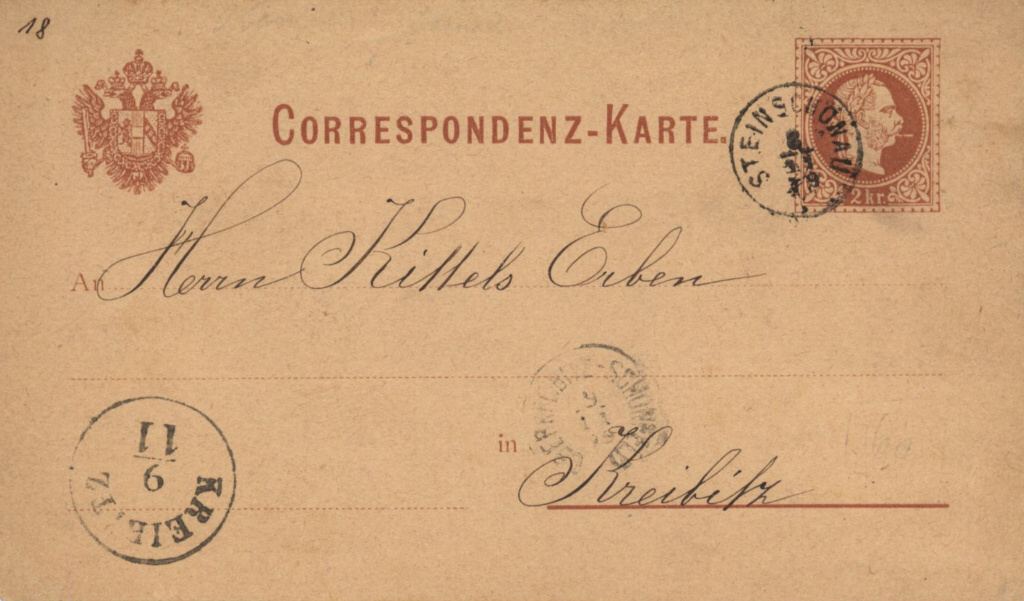 18
CORRESPONDENZ-KARTE.
STEINSCHÖNAU
2 kr.
An Herrn Kittels Erben
in Kreibitz
KREIBITZ
9
11